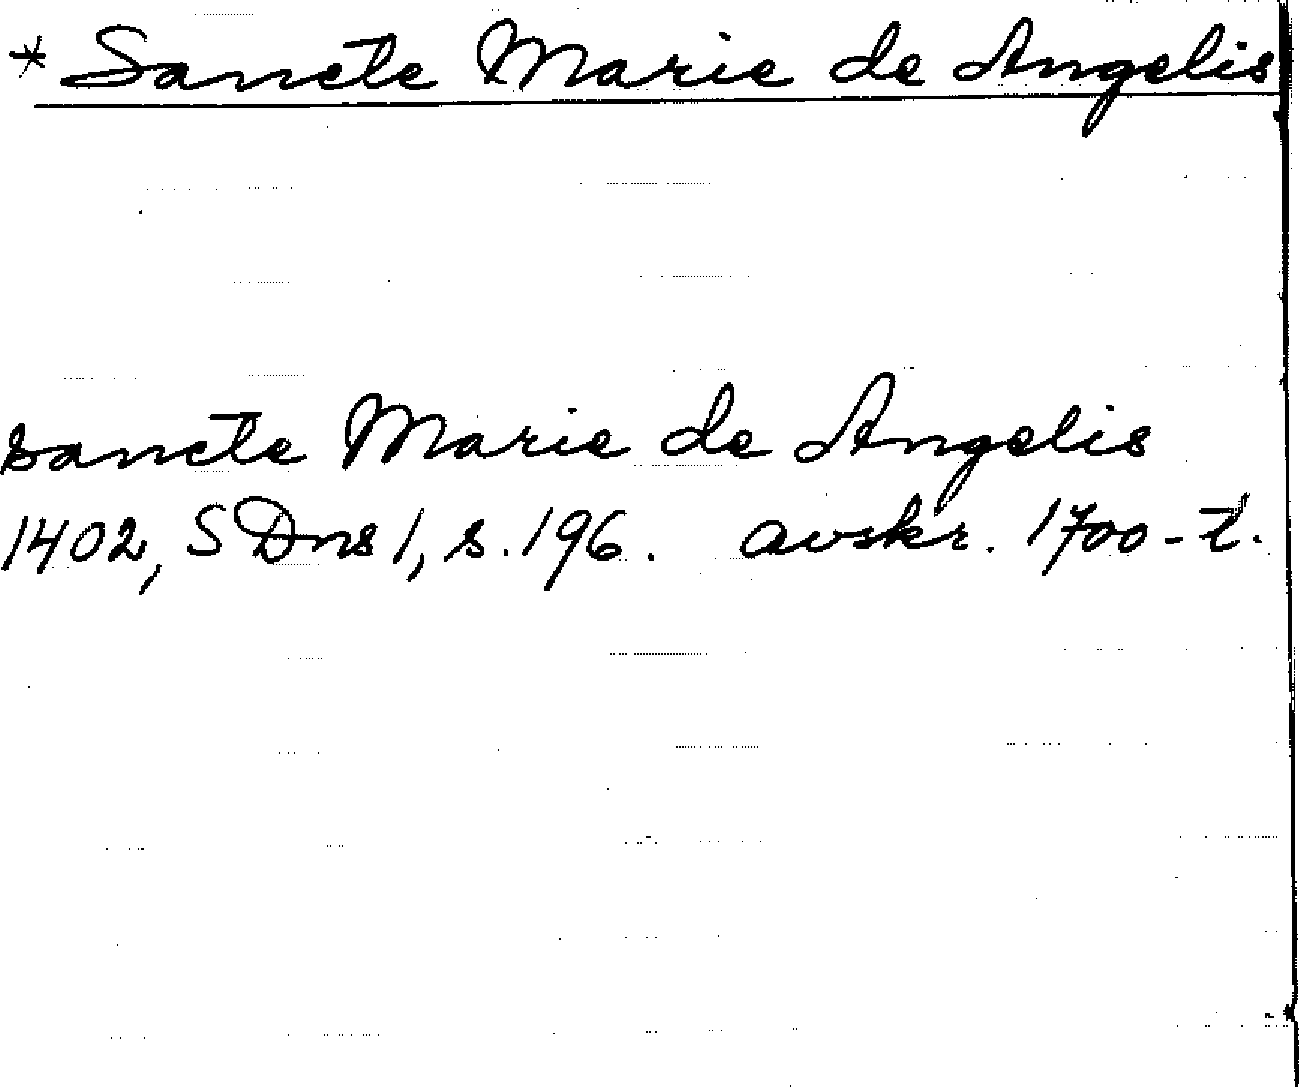 * Sancte Marie de Angelis
sancte Marie de Angelis
1402, SDns 1, s. 196. avskr. 1700-t.